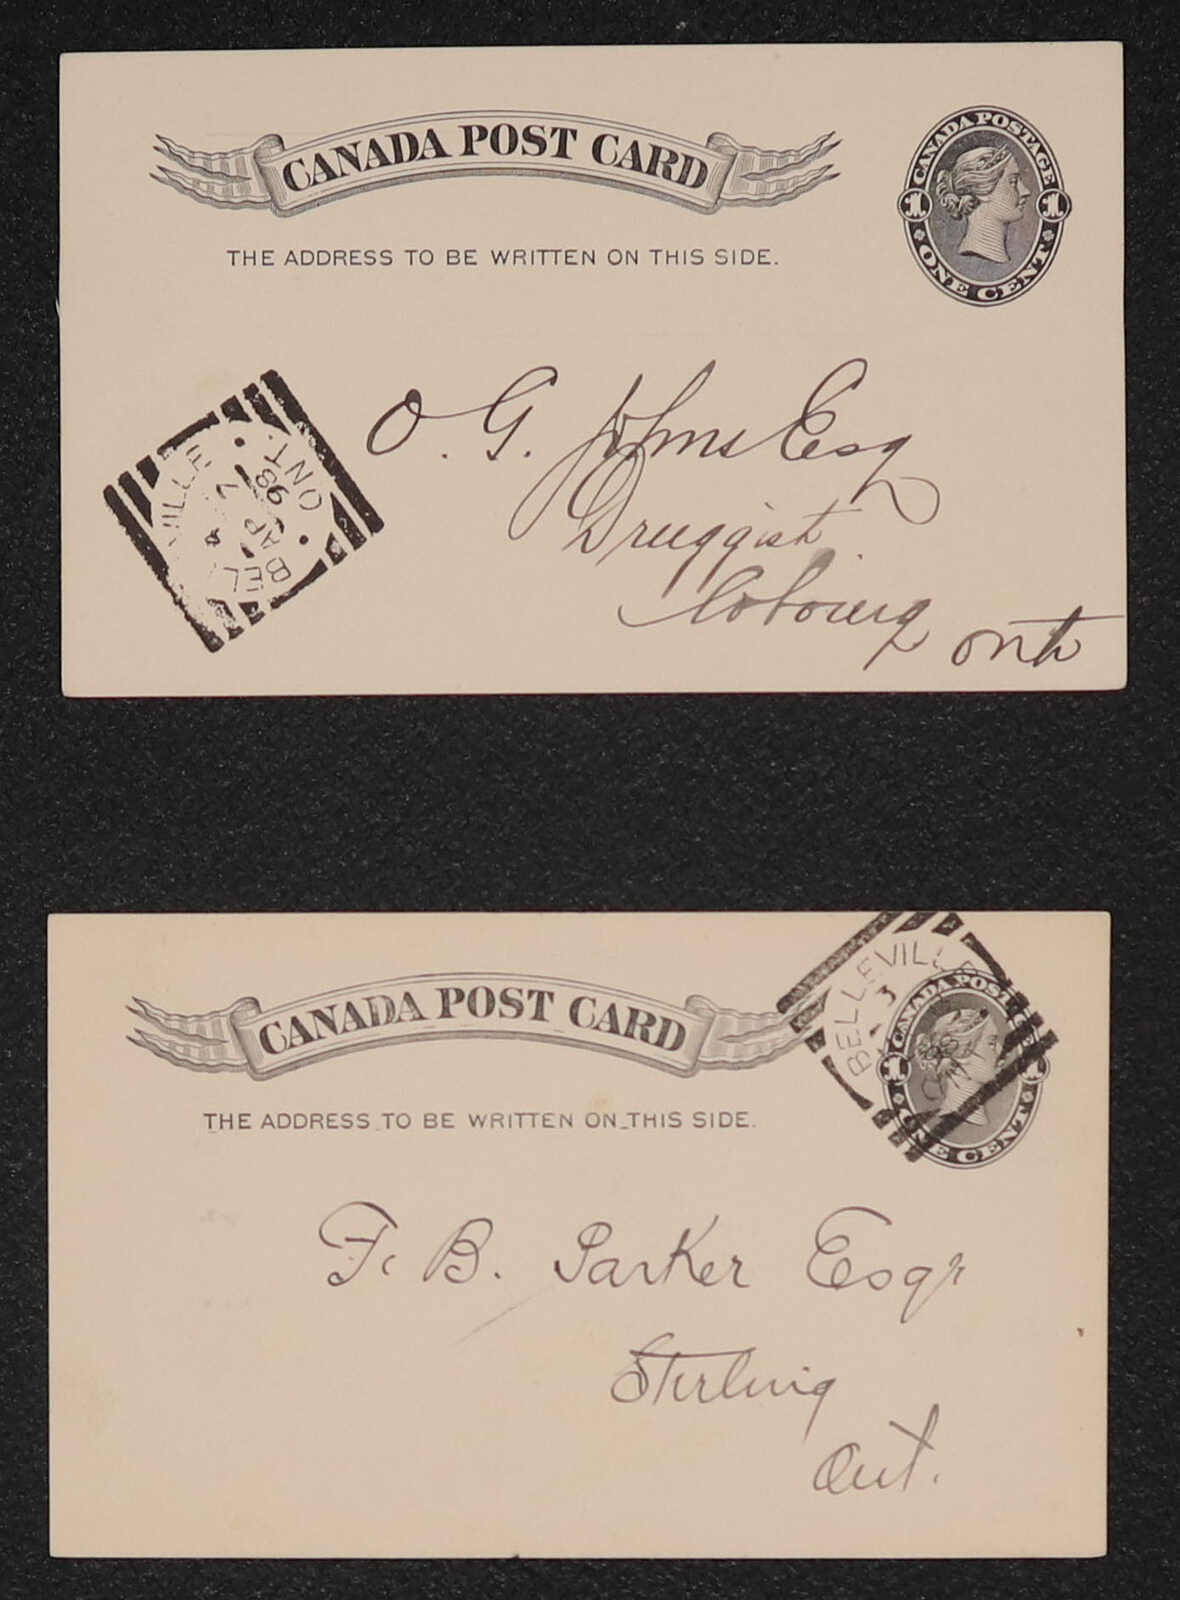 CANADA POST CARD
CANADA POSTAGE
1 1
ONE CENT
THE ADDRESS TO BE WRITTEN ON THIS SIDE.
O. G. Johns Esq
Druggist
Cobourg Ont
BELLEVILLE
7
AP
98
ONT.
BELLEVILLE
3
98
ONT
CANADA POST CARD
CANADA POSTAGE
1 1
ONE CENT
THE ADDRESS TO BE WRITTEN ON THIS SIDE.
F. B. Parker Esqr
Sterling
Ont.